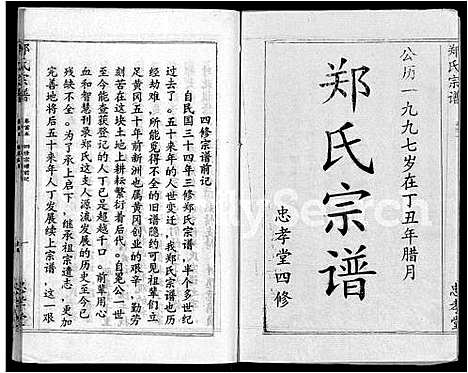 郑氏宗谱
公历一九九七岁在丁丑年腊月
郑氏宗谱
忠孝堂四修
忠孝堂
四修宗谱前记
自民国三十四年三修郑氏宗谱，半个多世纪
过去了。五十来年的人世变迁，我郑氏宗谱也历
经劫难，所能觅得不全的旧谱隐约可见祖辈们立
足黄冈五十年前新洲也属黄冈创业的艰辛，勤劳
刻苦在这块土地上耕耘繁衍着后代。自冕公一世
至今能查获登记的人丁已是超越千口。前辈用心
血和智慧刊录郑氏这支人源流发展的历史至今已
残缺不全。为了承上启下，继承祖宗遗志，更加
完善地将后五十来年人丁发展续上宗谱，这一艰
郑氏宗谱
卷首
四修宗谱前记
一
忠孝堂